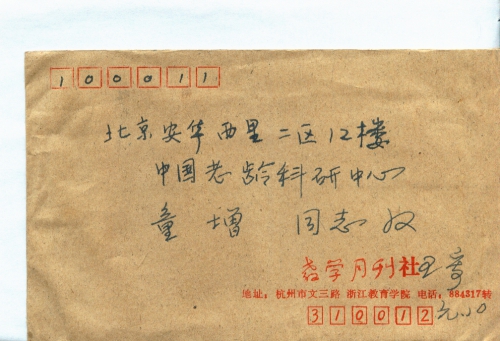 100011
北京安华西里二区12楼
中国老龄科研中心
童增 同志收
教学月刊社 王寄
地址：杭州市文三路 浙江教育学院 电话：884317转
310012 元.20